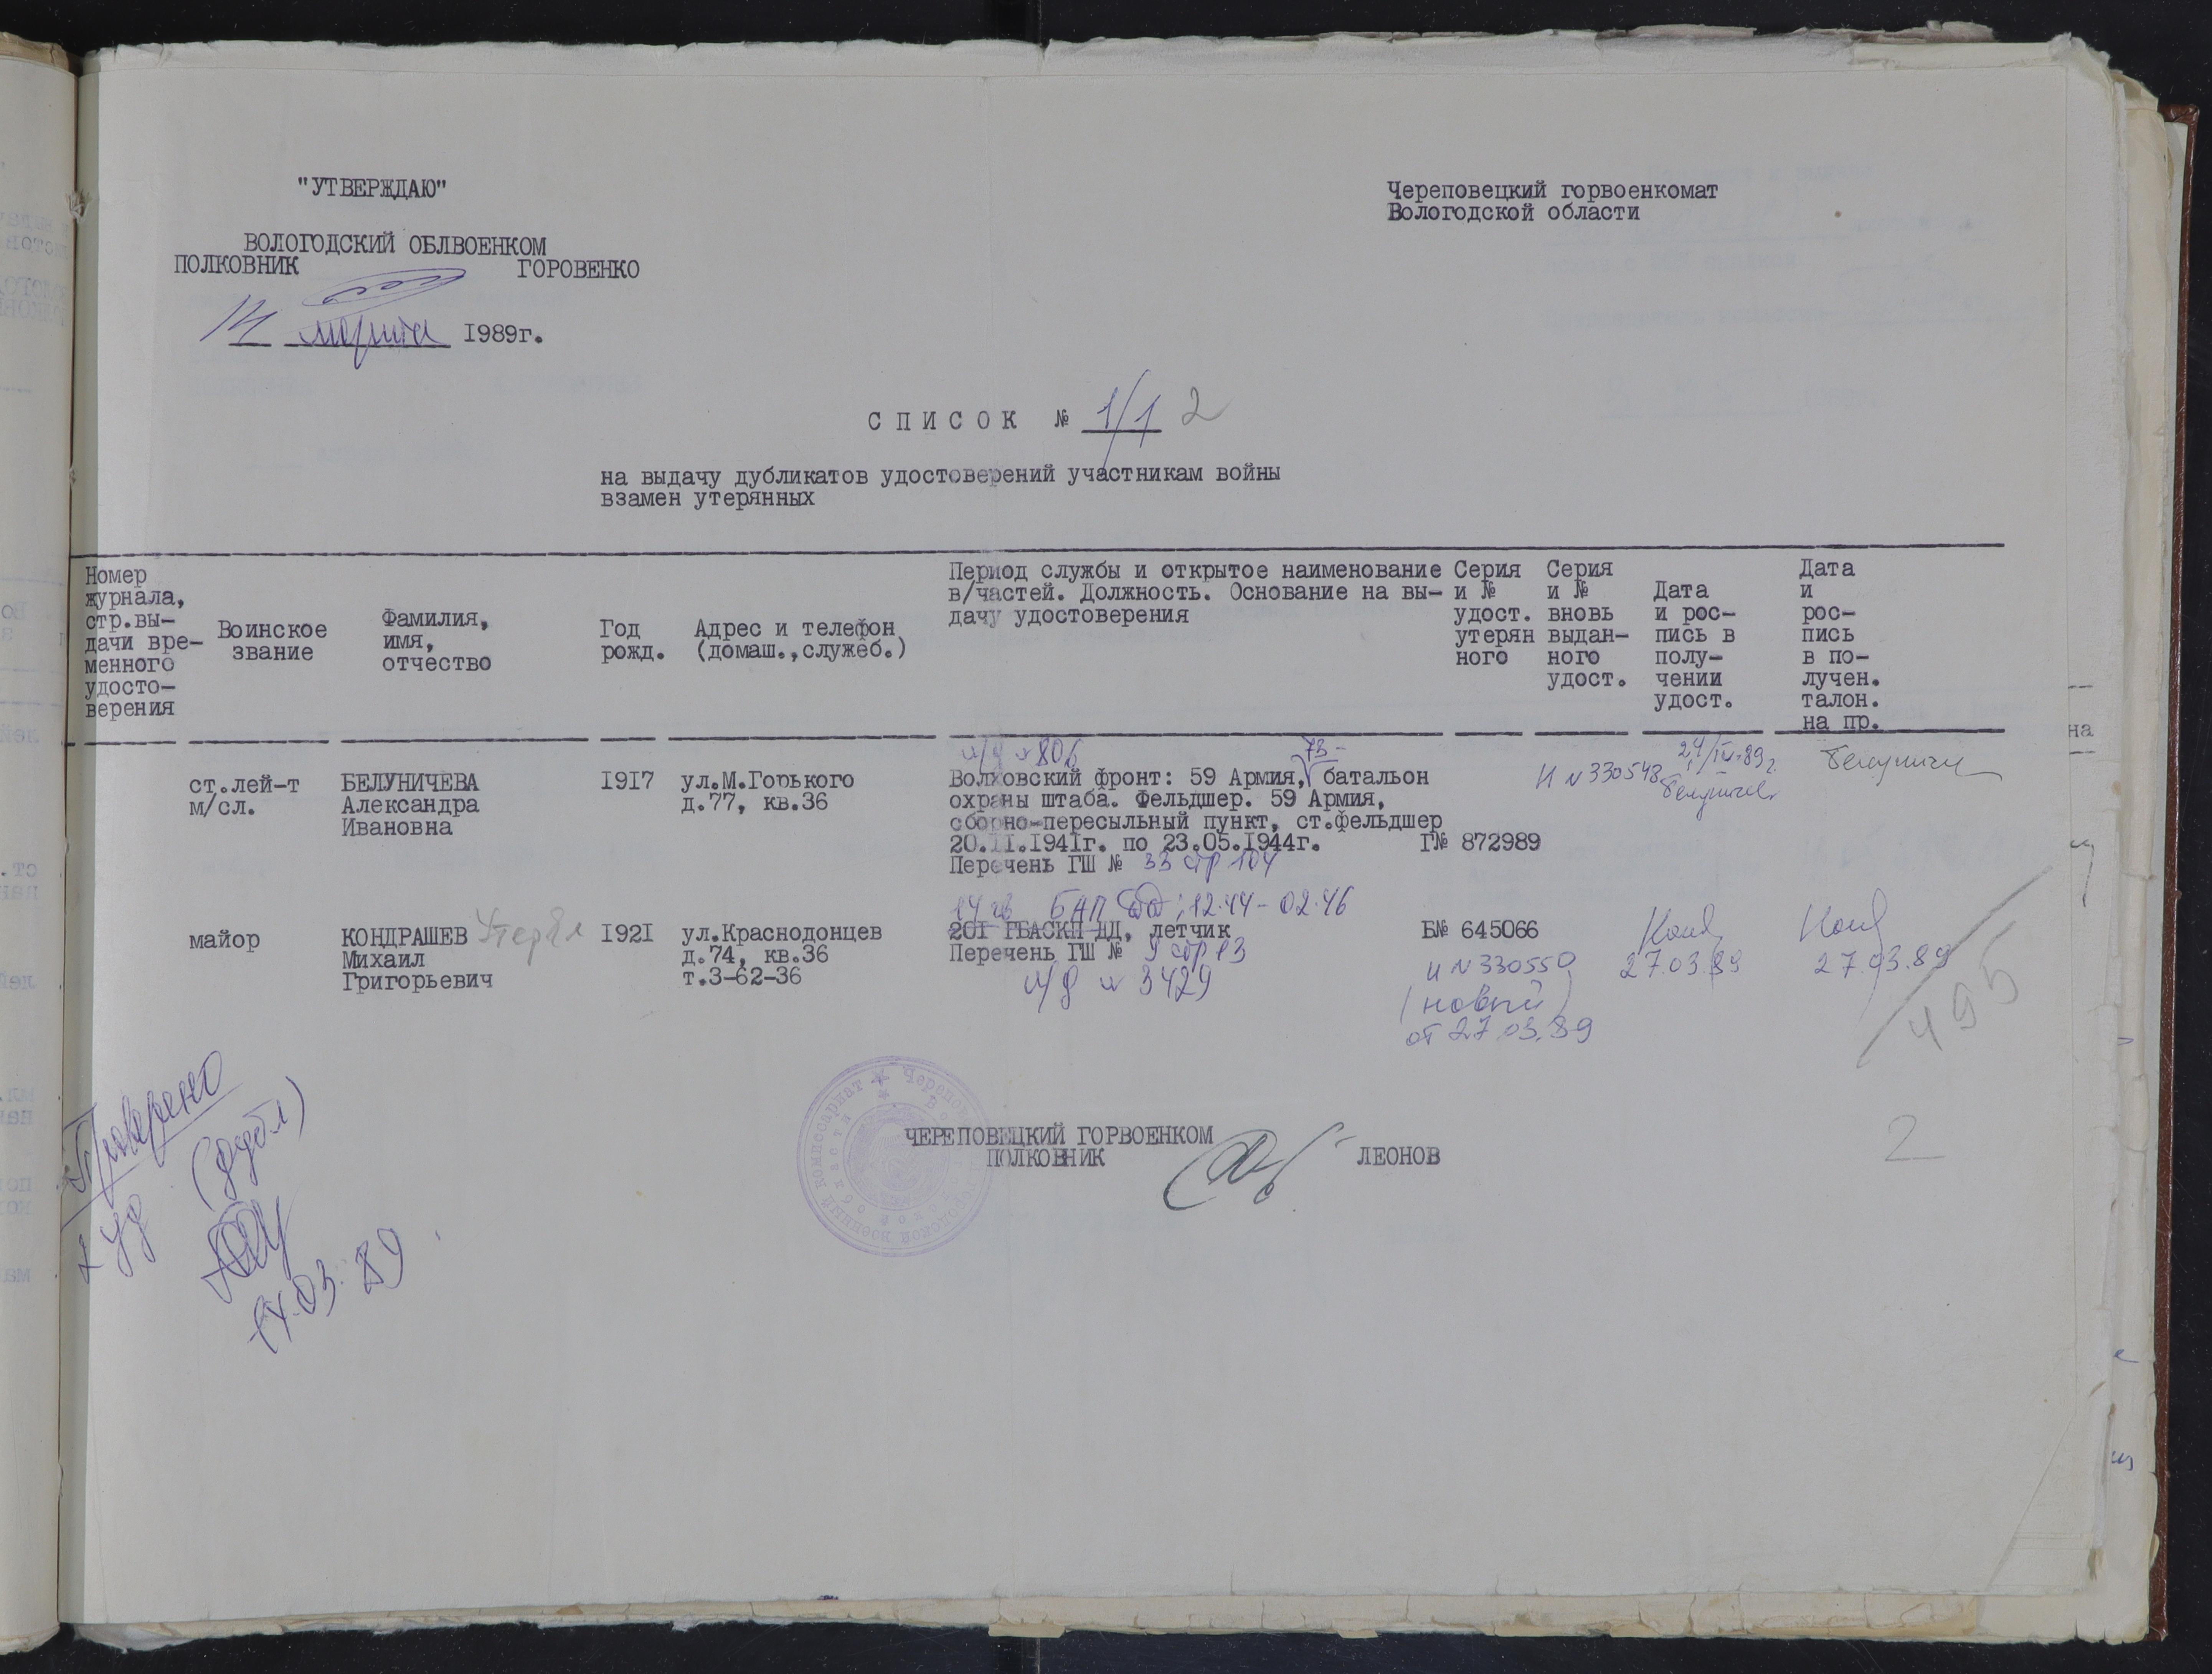 "УТВЕРЖДАЮ"
ВОЛОГОДСКИЙ ОБЛВОЕНКОМ
ПОЛКОВНИК ГОРОВЕНКО
14 марта 1989г.
Череповецкий горвоенкомат
Вологодской области
СПИСОК № 1/1 2
на выдачу дубликатов удостоверений участникам войны
взамен утерянных
Номер
журнала,
стр.вы-
дачи вре-
менного
удосто-
верения
Воинское
звание
Фамилия,
имя,
отчество
Год
рожд.
Адрес и телефон
(домаш.,служеб.)
Период службы и открытое наименование
в/частей. Должность. Основание на вы-
дачу удостоверения
Серия
и №
удост.
утерян
ного
Серия
и №
вновь
выдан-
ного
удост.
Дата
и рос-
пись в
полу-
чении
удост.
Дата
и
рос-
пись
в по-
лучен.
талон.
на пр.
ст.лей-т
м/сл.
БЕЛУНИЧЕВА
Александра
Ивановна
1917
ул.М.Горького
д.77, кв.36
л/д № 806 73-
Волховский фронт: 59 Армия, батальон
охраны штаба. Фельдшер. 59 Армия,
сборно-пересыльный пункт, ст.фельдшер
20.11.1941г. по 23.05.1944г.
Перечень ГШ № 33 стр 104
Г№ 872989
И № 330548
24/IV-89г.
майор
КОНДРАШЕВ Утерял
Михаил
Григорьевич
1921
ул.Краснодонцев
д.74, кв.36
т.3-62-36
14 гв БАП ДД; 12.44-02.46
201 ГБАСКП ДД, летчик
Перечень ГШ № 9 стр 13
л/д № 3429
Б№ 645066
И № 330550
(новый)
от 27.03.89
27.03.89
27.03.89
495
2
Проверено
2 уд (дубл)
14.03.89
ЧЕРЕПОВЕЦКИЙ ГОРВОЕНКОМ
ПОЛКОВНИК ЛЕОНОВ